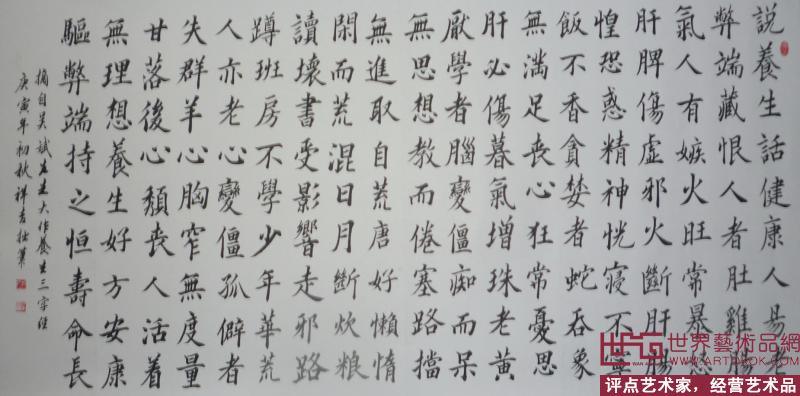 說養生話健康人易老
弊端藏恨人者肚雞腸
氣人有嫉火旺常暴怒
肝脾傷虛邪火斷肝腸
惶恐惑精神恍寢不寧
飯不香貪婪者蛇吞象
無滿足喪心狂常憂思
肝必傷暮氣增珠老黃
厭學者腦變僵痴而呆
無思想教而倦塞路擋
無進取自荒唐好懶惰
閑而荒混日月斷炊粮
讀壞書受影響走邪路
蹲班房不學少年華荒
人亦老心變僵孤僻者
失群羊心胸窄無度量
甘落後心頹喪人活着
無理想養生好方安康
驅弊端持之恒壽命長
摘自吴斌先生大作養生三字經
庚寅年初秋祥吉拙筆
世界藝術品網
WWW.ARTDOOK.COM
评点艺术家，经营艺术品